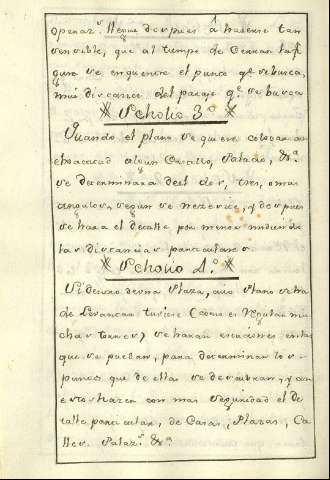 operaz.n llegue despues á hacerse tan
sensible, que al tiempo de cerrar la fi
gura se enquentre el punto q.e se busca,
mui distante del paraje q.e se busca
Scholio 3.o
Quando el plano se quiere colocar con
exactitud algun Castillo, Palacio, &.a
se determinara del dos, tres, o mas
angulos, segun se necesite, y despues
se hara el detalle por menor midiendo
las distancias particulares
Scholio 4.o
Si dentro de una Plaza, cuio Plano se ha
de Levantar tuviere (como es regular mu
chas torres) se haran estaciones en las
que se puedan, para determinar los
puntos que de ellas se descubran, y con
esto se hace con mas seguridad el de
talle particular, de Casas, Plazas, Ca
lles Palaz.s &.a